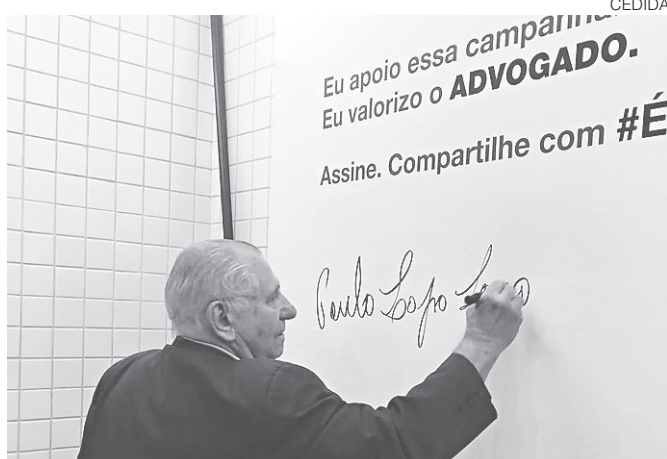 CEDIDA
Eu apoio essa campanha.
Eu valorizo o ADVOGADO.
Assine. Compartilhe com #É
Paulo Lopo